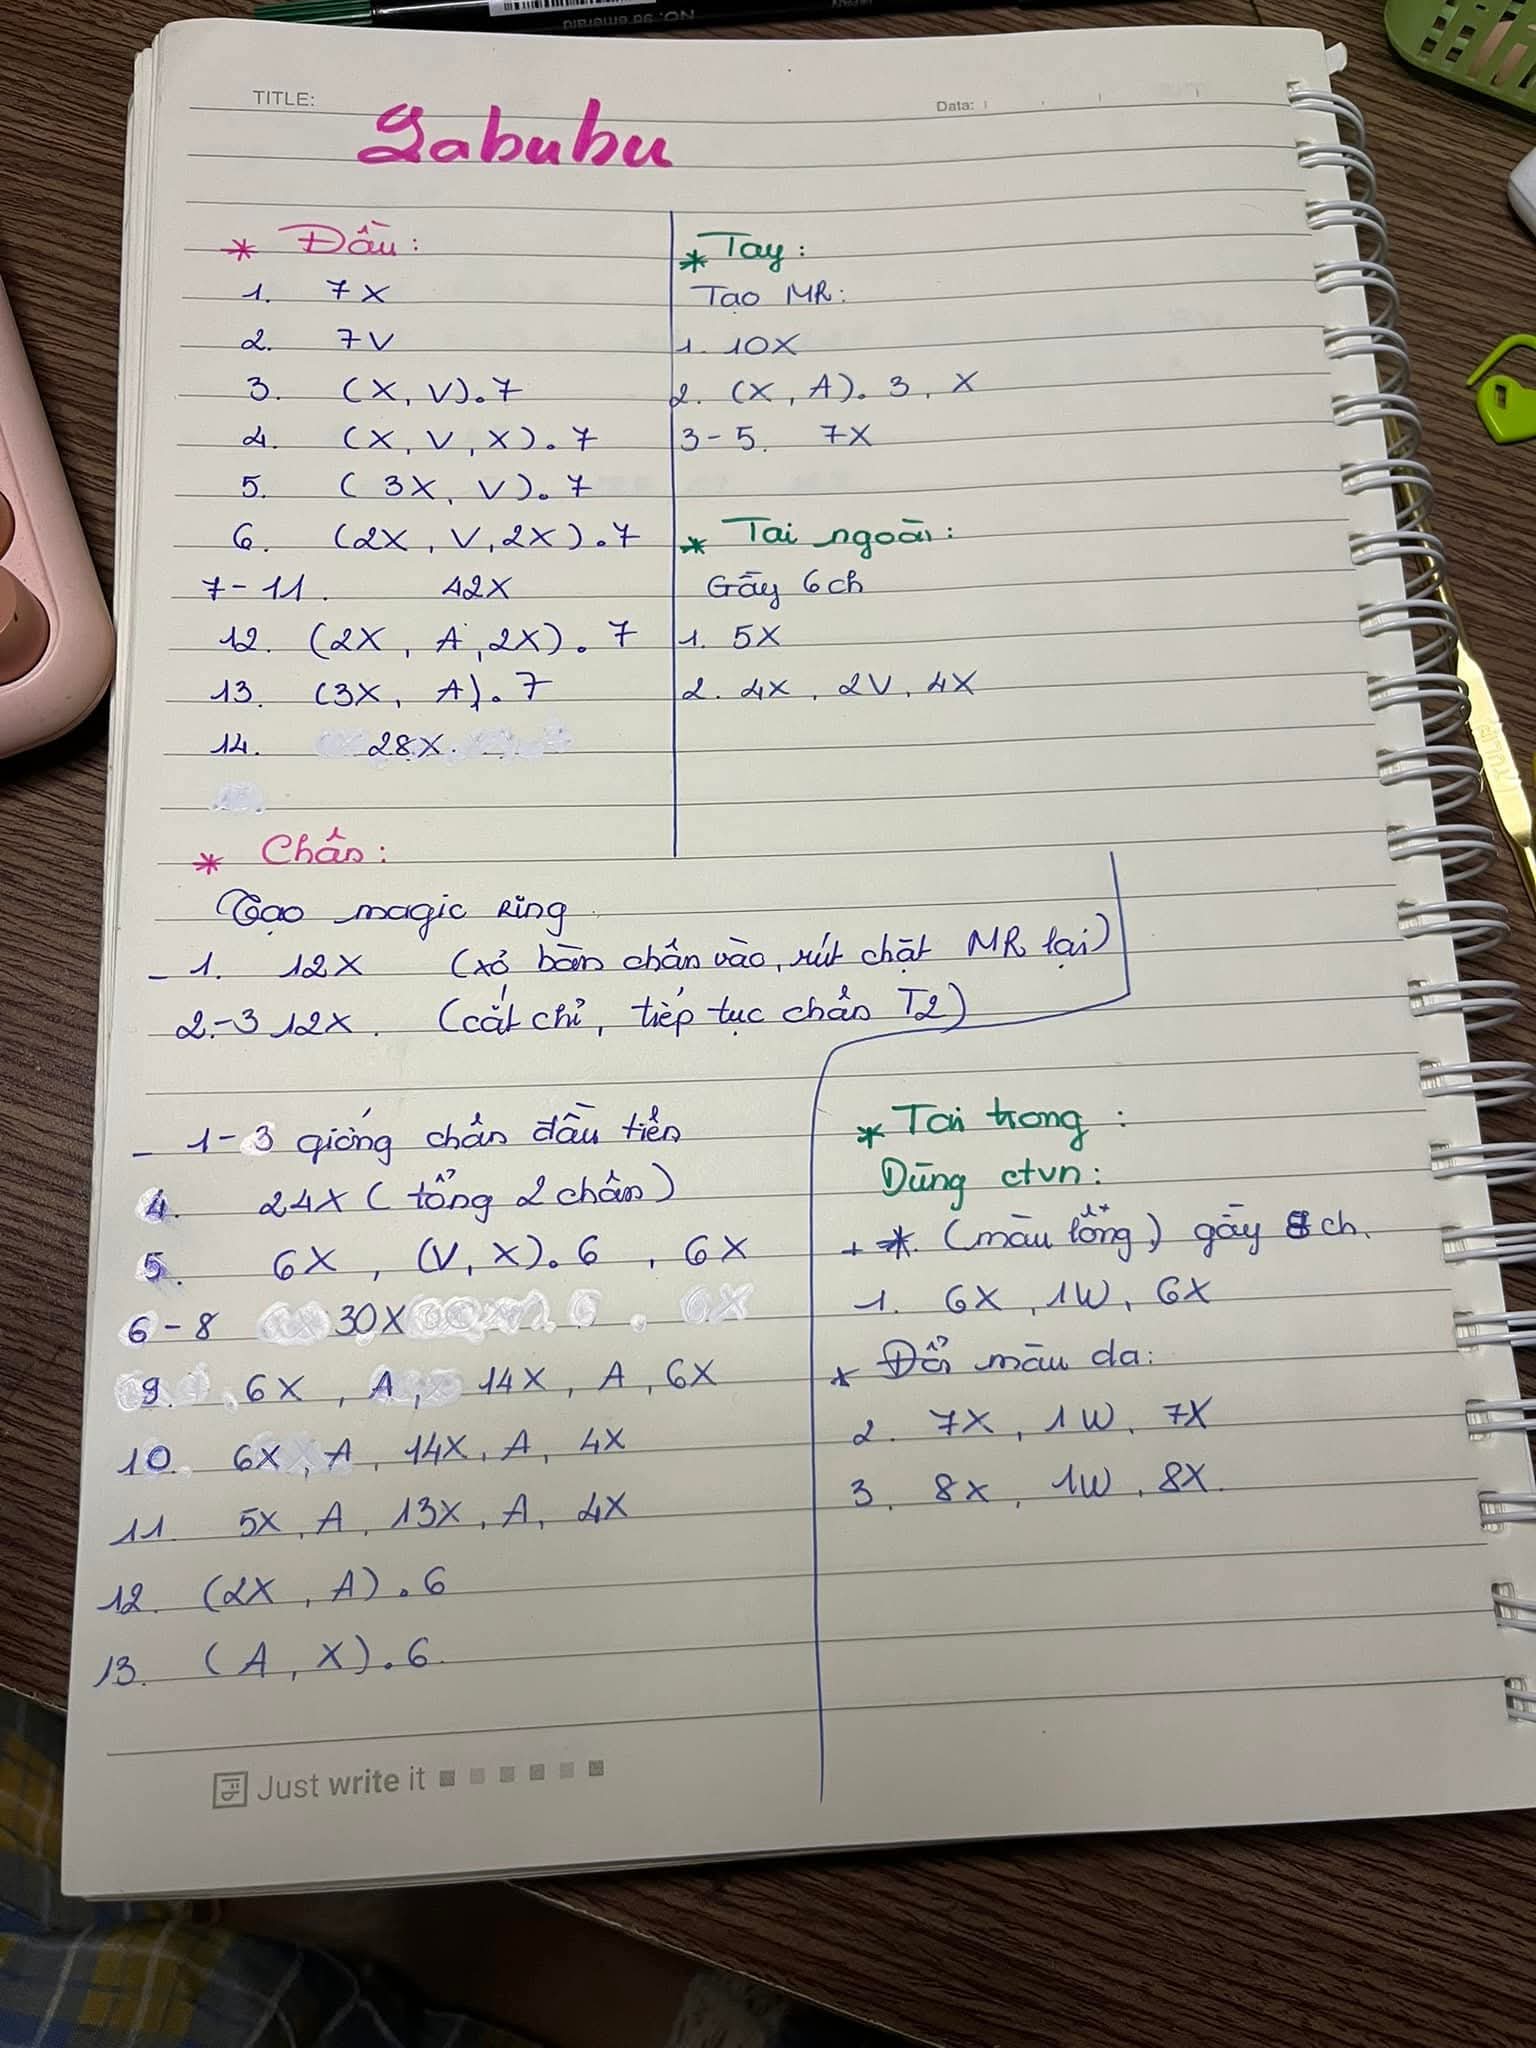 NO. 98 emerald
TITLE:
Data:
Labubu
* Đầu:
1. 7X
2. 7V
3. (X, V). 7
4. (X, V, X). 7
5. (3X, V). 7
6. (2X, V, 2X). 7
7-11. 42X
12. (2X, A, 2X). 7
13. (3X, A). 7
14. 28X.
* Tay:
Tạo MR:
1. 10X
2. (X, A). 3, X
3-5. 7X
* Tai ngoài:
Gãy 6ch
1. 5X
2. 4X, 2V, 4X
* Chân:
Tạo magic ring.
- 1. 12X (xỏ bàn chân vào, rút chặt MR lại)
2-3 12X. (cắt chỉ, tiếp tục chân T2)
- 1-3 giống chân đầu tiên
4. 24X (tổng 2 chân)
5. 6X, (V, X). 6, 6X
6-8 30X
9. 6X, A, 14X, A, 6X
10. 6X, A, 14X, A, 4X
11. 5X, A, 13X, A, 4X
12. (2X, A). 6
13. (A, X). 6.
* Tai trong:
Dùng ctvn:
+ *. (màu lông) gãy 8ch.
1. 6X, 1W, 6X
* Đổi màu da:
2. 7X, 1W, 7X
3. 8X, 1W, 8X.
Just write it